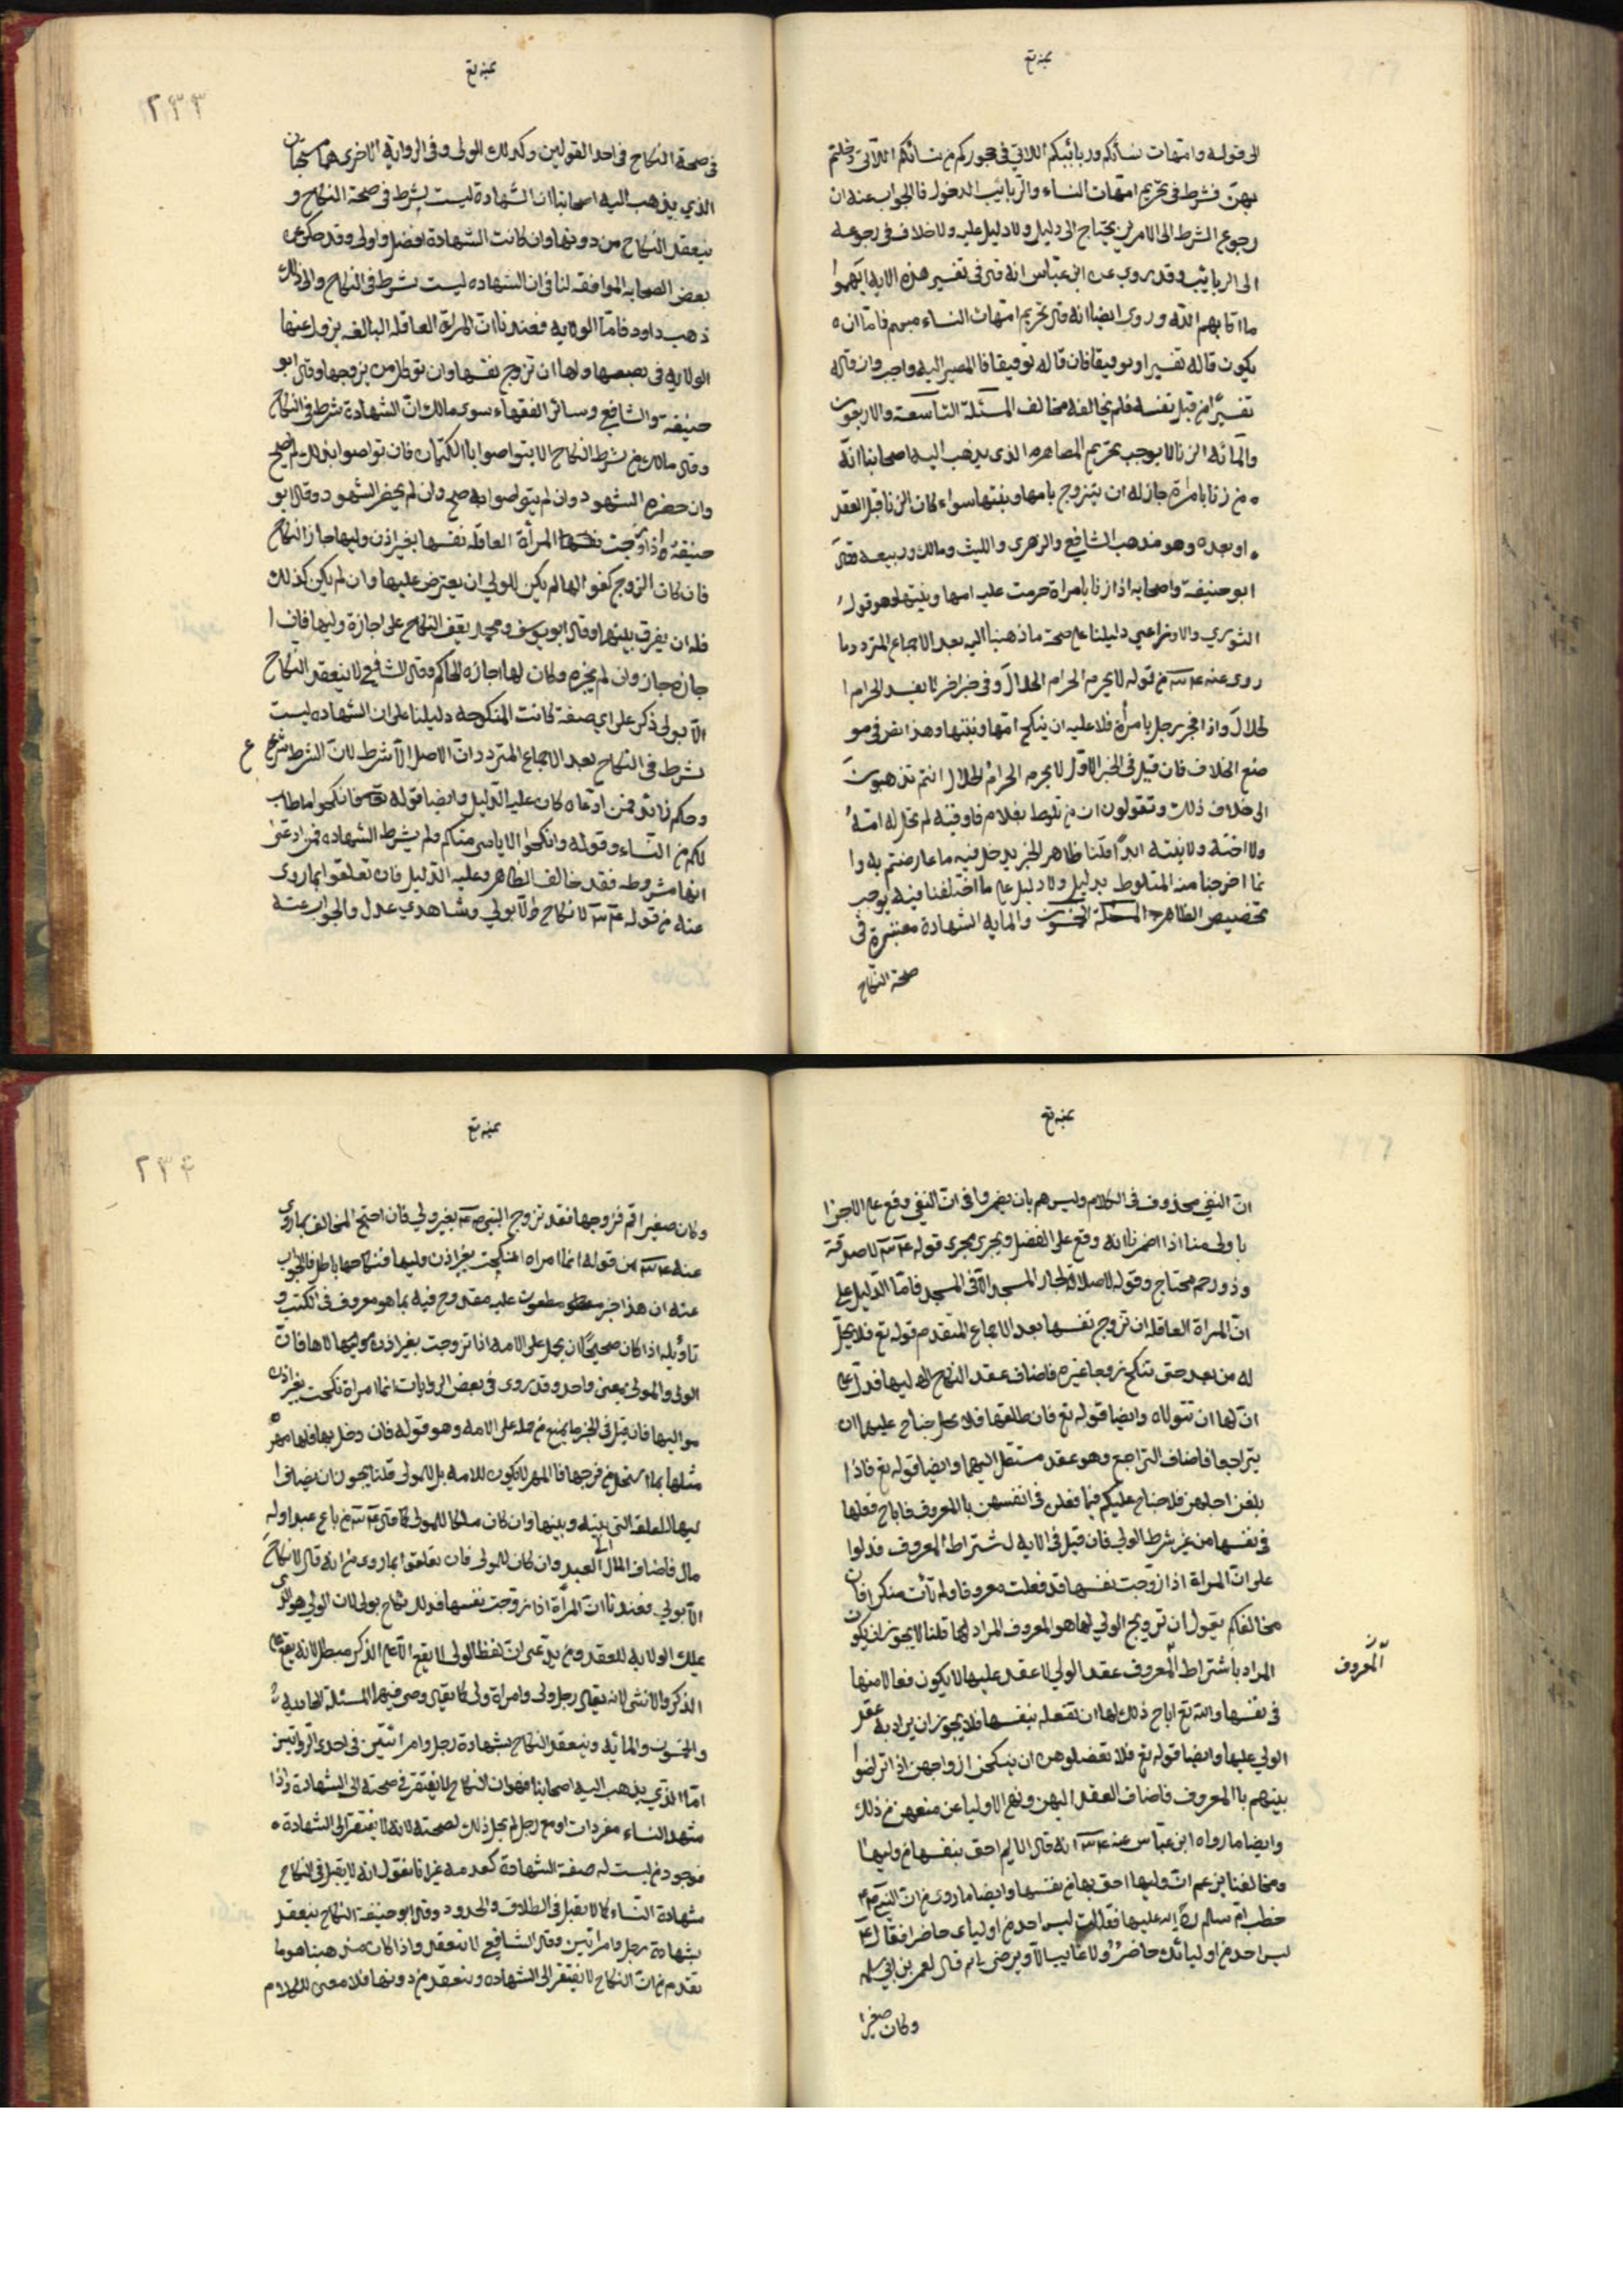 الى قوله وامهات نسائكم وربائبكم اللاتي في حجوركم من نسائكم اللآتى دخلتم
بهنّ فشرط في تحريم امّهات النساء والرّبائب الدخول فالجواب عنه ان
رجوع الشرط الى الامرين يحتاج الى دليل ولا دليل عليه ولا خلاف في رجوعه
الى الربائب وقد روى عن ابن عبّاس انه قال في تفسير هذه الايه ابهموا
ما ابهم الله وروى ايضا انه قال تحريم امّهات النساء مبهم فامّا ان ه
يكون قاله تفسيرا او توقيفا فان قاله توقيفا فالمصير اليه واجب وان قاله
تفسيرًا من قبل نفسه فلم يخالفه مخالف المسئلة التاسعة والاربعون
والمائه الزنا لا يوجب تحريم المصاهره الذى يذهب اليه اصحابنا انّه
ه من زنا بامراة جاز له ان يتزوج بامها وبنتها سواء كان الزنا قبل العقد
ه او بعده وهو مذهب الشافعي والزهرى والليث ومالك وربيعه وقال
ابو حنيفة واصحابه اذا زنا بامراة حرمت عليه امها وبنتها وهو قول
الثوري والاوزاعي دليلنا على صحة ما ذهبنا اليه بعد الاجماع المتردد ما
روى عنه ع من قوله لا يحرم الحرام الحلال وفي خبر اخر لا يفسد الحرام ا
لحلال واذا فجر رجل بامرأة فلا عليه ان ينكح امّها وبنتها وهذا نص في مو
ضع الخلاف فان قيل في الخبر الاوّل لا يحرم الحرام الحلال انتم تذهبون
الى خلاف ذلك وتقولون ان من تلوط بغلام فاوقبه لم تحل له امّهُ
ولا اخته ولا بنته ابدًا قلنا ظاهر الخبر يدخل فيه ما عارضتم به وا
نما اخرجنا منه المتلوط بدليل ولا دليل على ما اختلفنا فيه يوجب
تخصيص الظاهر المسئلة الخمسون والمايه الشهادة معتبرة في
صحة النكاح
عنه تع
٢٣٣
في صحة النكاح في احد القولين وكذلك الولى وفى الرواية الاخرى هما مستحبّان
الذي يذهب اليه اصحابنا ان الشهادة ليست بشرط في صحة النكاح و
ينعقد النكاح من دونها وان كانت الشهادة افضل واولى وقد حكى عن
بعض الصحابه الموافقه لنا في ان الشهاده ليست بشرط في النكاح والى ذلك
ذهب داود فامّا الولايه فعندنا انّ المراة العاقله البالغه تزول عنها
الولايه في بضعها ولها ان تزوج نفسها وان توكل من يزوجها وقال ابو
حنيفة والشافعي وسائر الفقهاء سوى مالك انّ الشهادة شرط في النكاح
وقال مالك من شرط النكاح الا يتواصوا بالكتمان فان تواصوا بذلك لم يصح
وان حضره الشهود وان لم يتواصوا به صح وان لم يحضر الشهود وقال ابو
حنيفة اذا زوّجت المرأة العاقله نفسها بغير اذن وليها جاز النكاح
فان كان الزوج كفوا لها لم يكن للولي ان يعترض عليها وان لم يكن كذلك
فله ان يفرق بينهما وقال ابو يوسف ومحمد يقف النكاح على اجازة وليها فان ا
جازه جاز وان لم يجزه وكان لها اجازه الحاكم وقال الشافعي لا ينعقد النكاح
الّا بولى ذكر على اي صفة كانت المنكوحه دليلنا على ان الشهاده ليست
بشرط في النكاح بعد الاجماع المتردد انّ الاصل الّا شرط لانّ الشرط شرعي
وحكم زائد فمن ادّعاه كان عليه الدّليل وايضا قوله فانكحوا ما طاب
لكم من النساء وقوله وانكحوا الايامى منكم ولم يشرط الشهاده فمن ادعى
انها مشروطه فقد خالف الظاهر وعليه الدّليل فان تعلقوا بما روى
عنه من قوله ع لا نكاح الّا بولي وشاهدي عدل والجواب عنه
عنه تع
انّ النفي محذوف في الكلام وليس هم بان يضمروا في انّ النفي وقع على الاجزا
باولى منا اذا اضمرنا انه وقع على الفضل ويجرى مجرى قوله ع لا صدقة
وذو رحم محتاج وقوله لا صلاة لجار المسجد الّا في المسجد فامّا الدّليل على
انّ المراة العاقله ان تزوج نفسها بعد الاجماع المتقدم قوله تع فلا يحلّ
له من بعد حتى تنكح زوجا غيره فاضاف عقد النكاح اليها فدلّ على
انّ لها ان تتولاه وايضا قوله تع فان طلقها فلا جناح عليهما ان
يتراجعا فاضاف التراجع وهو عقد مستقل اليهما وايضا قوله تع فاذا
بلغن اجلهن فلا جناح عليكم فيما فعلن في انفسهن بالمعروف فاباح فعلها
في نفسها من غير شرط الولي فان قيل في الايه اشتراط المعروف فدلوا
على انّ المراة اذا زوجت نفسها قد فعلت معروفا ولم تأت منكرا فان
مخالفكم يقول ان ترويج الولي لها هو المعروف المراد لها قلنا لا يجوز ان يكون
المراد باشتراط المعروف عقد الولي لا عقد عليها لا يكون فعلا منها
المعروف
في نفسها والله تع اباح ذلك لها ان تفعله بنفسها فلا يجوز ان يراد به عقد
الولي عليها وايضا قوله تع فلا تعضلوهن ان ينكحن ازواجهن اذا تراضوا
بينهم بالمعروف فاضاف العقد اليهن ونهى الاوليا عن منعهن من ذلك
وايضا ما رواه ابن عبّاس عنه ع انه قال الايم احق بنفسها من وليها
ومخالفنا يزعم انّ وليها احق بها من نفسها وايضا ما روى من ان النبي
خطب امّ سلمه عليها فقالت ليس احد من اوليائى حاضرا فقال
ليس احد من اوليائك حاضرٌ ولا غايبا الّا ويرضى بى ثم قال لعمر بن ابي سلمه
وكان صغيرا
عنه تع
٢٣٤
وكان صغيرا قم فزوجها فقد تزوج النبي بغير ولي فان احتج المخالف بما روى
عنه ع من قوله انما امراه انكحت بغير اذن وليها فنكاحها باطل فالجواب
عنه ان هذا خبر مطعون عليه مقدوح فيه بما هو معروف في الكتب و
تاويله اذا كان صحيحًا ان يحمل على الامه اذا تزوجت بغير اذن مولاها فانّ
الولي والمولى بمعنى واحد وقد روى في بعض الروايات انما امراة نكحت بغير اذن
مواليها فان قيل في الخبر ما يمنع من حمله على الامه وهو قوله فان دخل بها فلها مهر
مثلها بما استحل من فرجها فالمهر لا يكون للامه بل للمولى قلنا يجوز ان يضاف ا
ليها للعلقة التى بينه وبينها وان كان ملكا للمولى كما قال ع من باع عبدا وله
مال فاضاف المال الى العبد وان كان للمولى فان تعلقوا بما روى من انه قال لا نكاح
الّا بولي فعندنا انّ المرأة اذا زوجت نفسها فذلك نكاح بولى لان الولي هو الذى
يملك الولاية للعقد ومن يدّعى ان لفظ الولى لا يقع الّا على الذكر مبطل لانه يقع على
الذكر والانثى لانه يقال رجل ولى وامراة ولى كما يقال وصى فيهما المسئلة الحاديه
والخمسون والمائه وينعقد النكاح بشهادة رجل وامراتين في احدى الروايتين
امّا الذي يذهب اليه اصحابنا فهو ان النكاح لا يفتقر في صحته الى الشهادة واذا
شهد النساء مفردات او مع رجل لم يخل ذلك لصحته لانه لا يفتقر الى الشهادة ه
فوجود من ليست له صفة الشهادة كعدمه غير انا نقول انه لا يقبل في النكاح
شهادة النساء كما لا يقبل في الطلاق والحدود وقال ابو حنيفة النكاح ينعقد
بشهادة رجل وامراتين وقال الشافعي لا ينعقد واذا كان مذهبنا هو ما
تقدم من انّ النكاح لا يفتقر الى الشهاده وينعقد من دونها فلا معنى للكلام